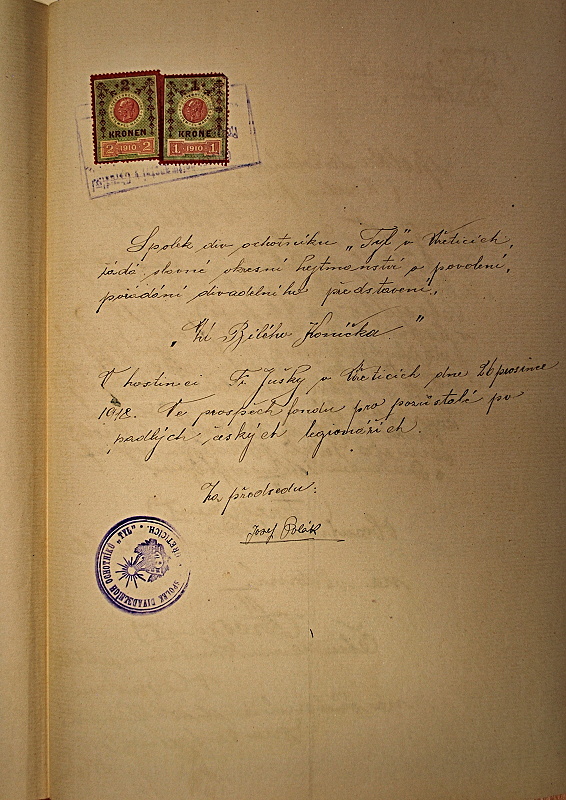 2 1
KRONEN KRONE
2 1910 2 1 1910 1
Spolek div. ochotníku „Tyl" v Úřeticích,
žádá slavné okresní hejtmanství o povolení,
pořádání divadelního představení,
„Ku Bílého Koníčka."
V hostinci Fr Jušky v Úřeticích dne 26 prosince
1918. Ve prospěch fondu pro pozůstalé po
padlých českých legionářích.
Za předsedu:
Josef Polák
SPOLEK DIVADELNÍCH OCHOTNÍKŮ „TYL" ÚŘETICÍCH.